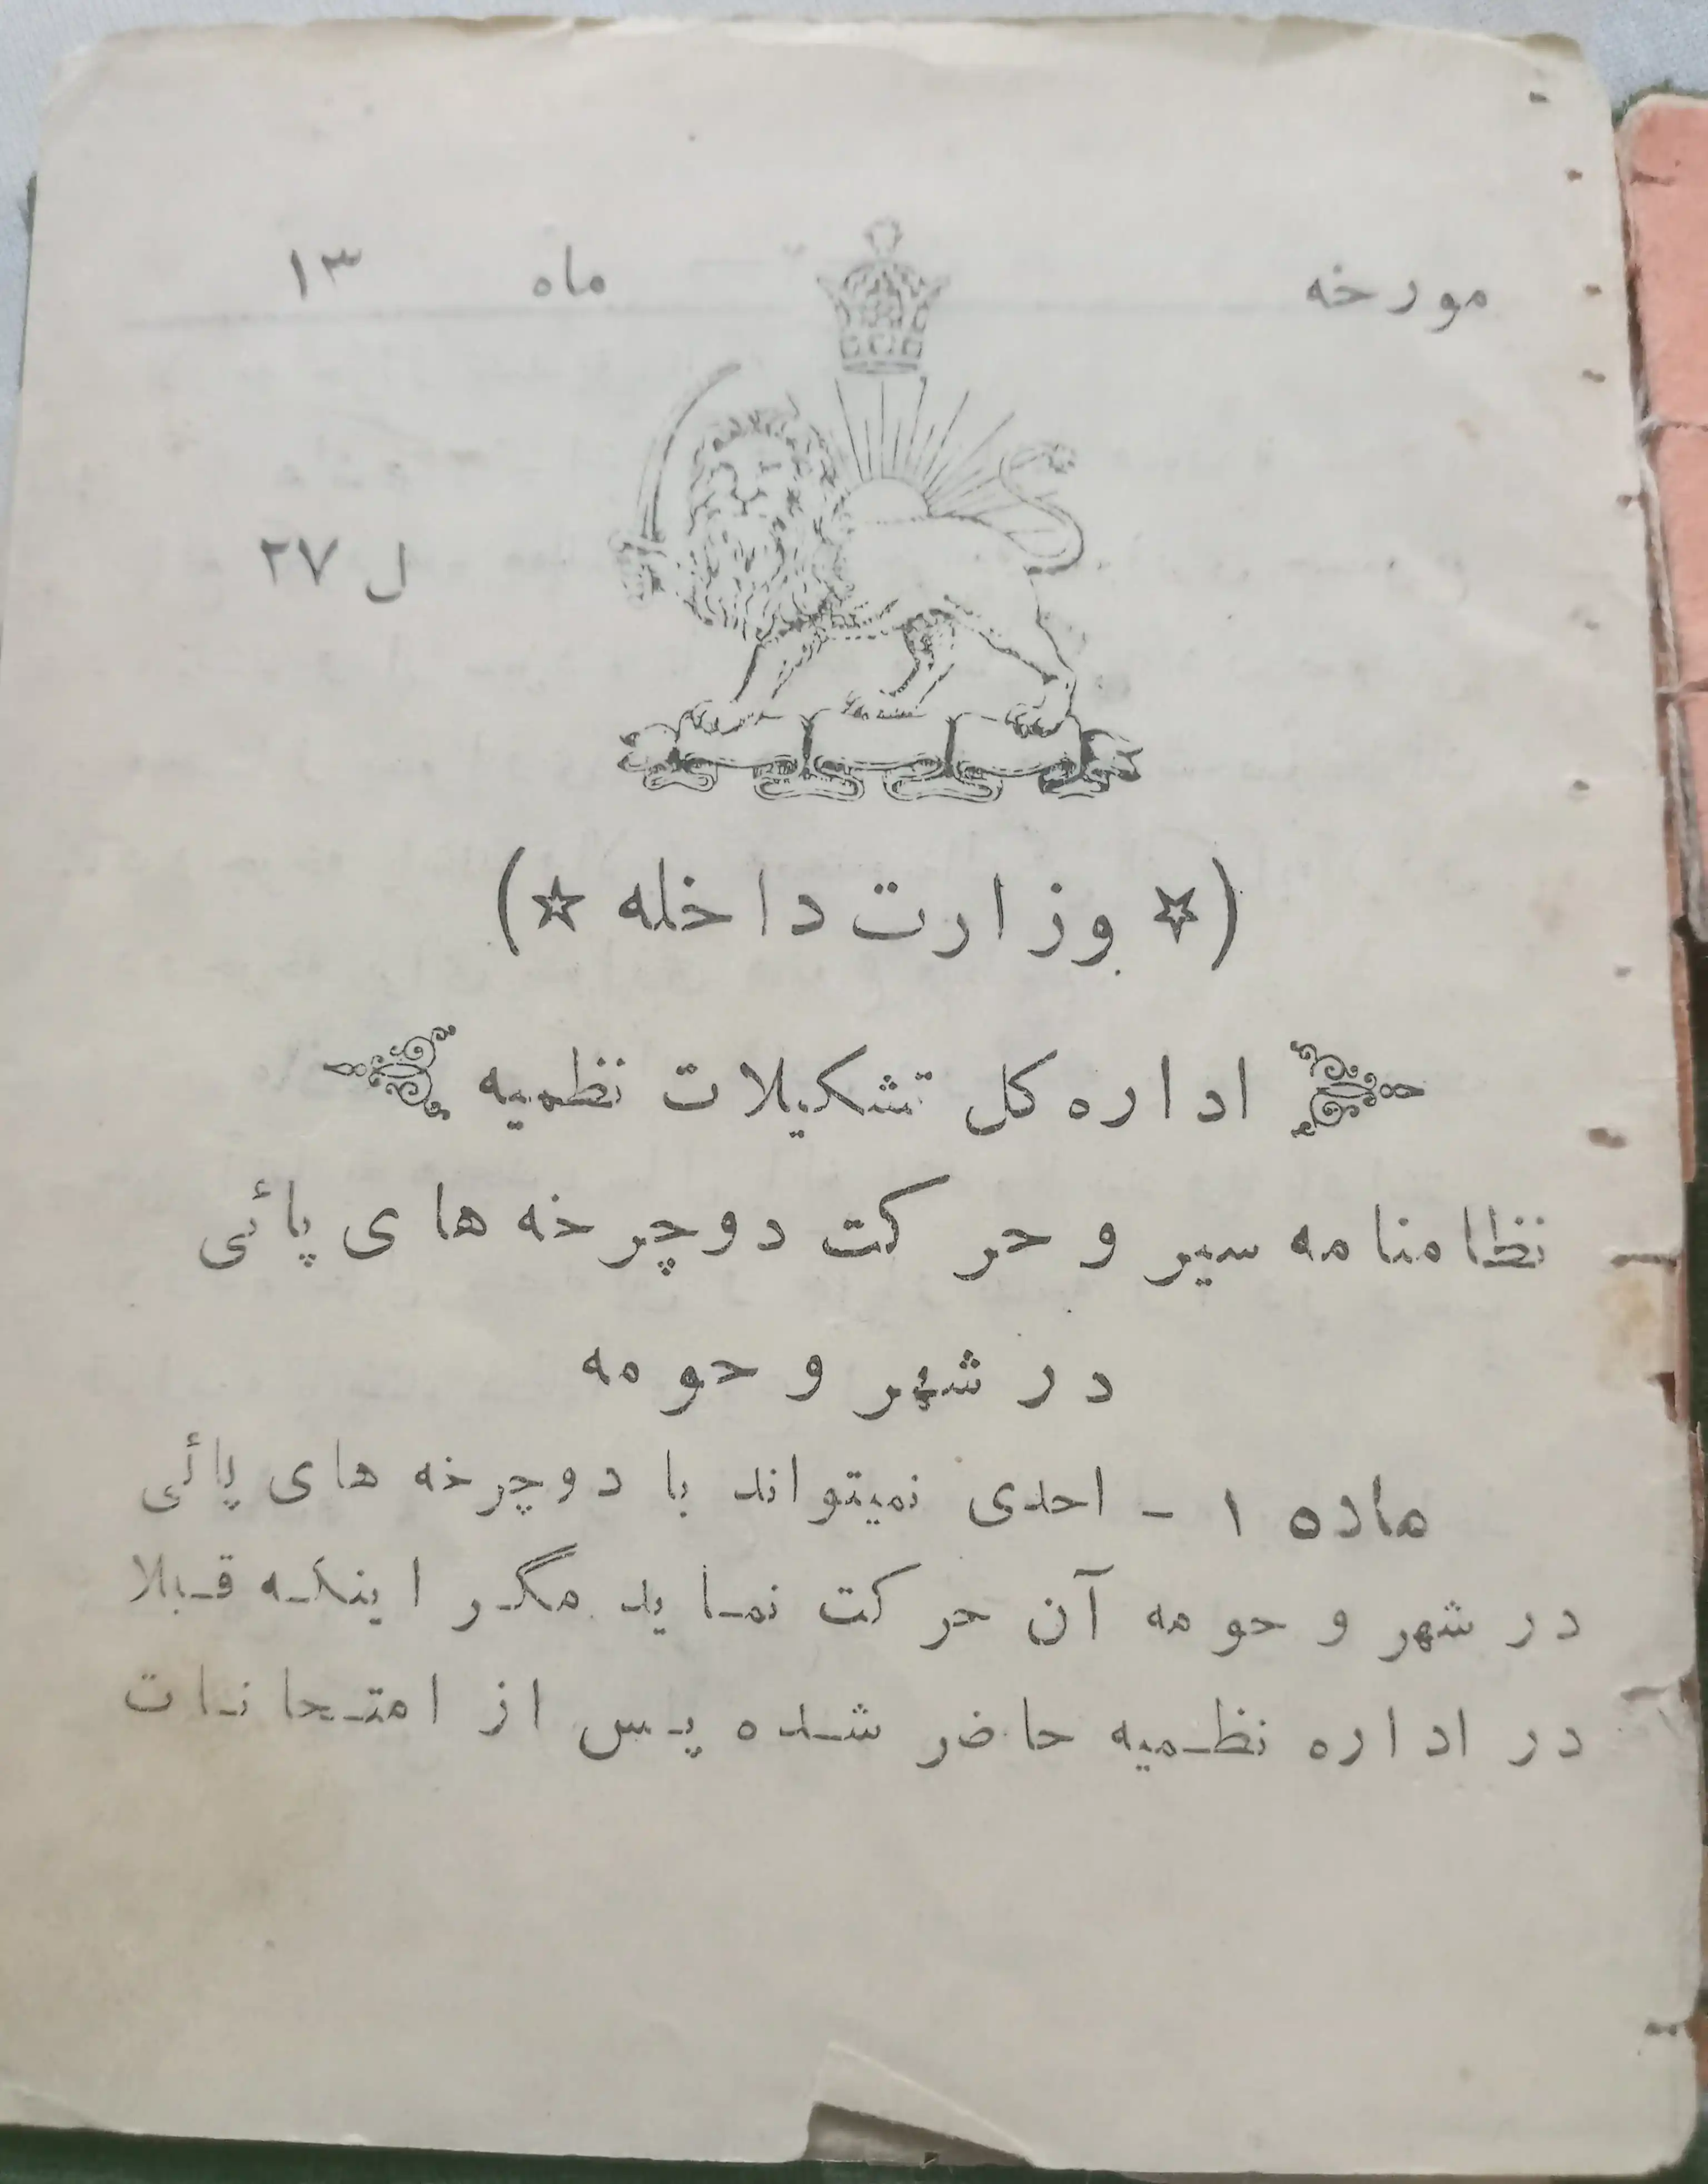 مورخه ماه ۱۳
ل ۲۷
(☆ وزارت داخله ☆)
اداره کل تشکیلات نظمیه
نظامنامه سیر و حرکت دوچرخه های پائی
در شهر و حومه
ماده ۱ - احدی نمیتواند با دوچرخه های پائی
در شهر و حومه آن حرکت نماید مگر اینکه قبلا
در اداره نظمیه حاضر شده پس از امتحانات